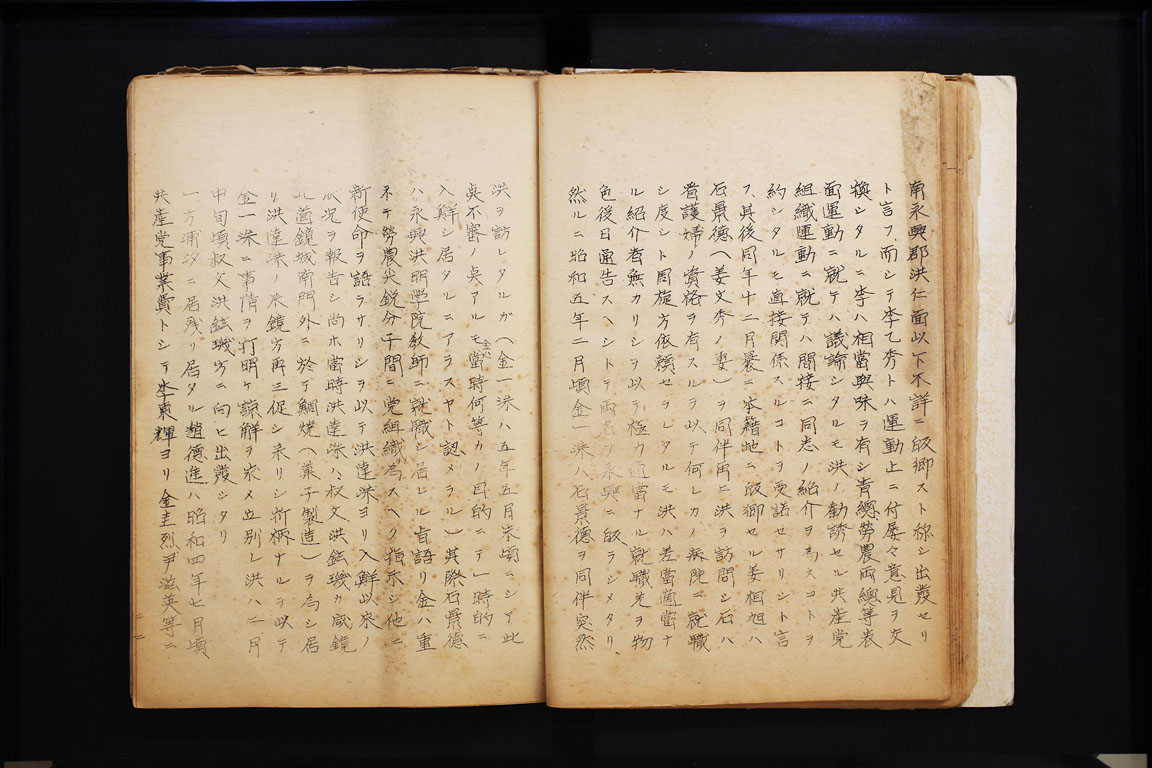 南永興郡洪仁面以下不詳ニ皈郷スト称シ出發セリ
ト言フ、而シテ李乙秀トハ運動上ニ付屡々意見ヲ交
換シタルニ李ハ相當興味ヲ有シ青總勞農両總等表
面運動ニ就テハ議論シタルモ洪ノ勧誘セル共産党
組織運動ニ就テハ間接ニ同志ノ紹介ヲ為スコトヲ
約シタルモ直接関係スルコトヲ受諾セサリシト言
フ、其後同年十二月裏ニ本籍地ニ皈郷セル姜相旭ハ
石景德（姜文秀ノ妻）ヲ同伴再ヒ洪ヲ訪問シ石ハ
看護婦ノ資格ヲ有スルヲ以テ何レカノ病院ニ就職
シ度シト周旋方依頼セラレタルモ洪ハ差當適當ナ
ル紹介者無カリシヲ以テ極力適當ナル就職先ヲ物
色後日通告スヘシトテ両名ヲ永興ニ皈ラシメタリ、
然ルニ昭和五年二月頃金一洙ハ石景德ヲ同伴突然
洪ヲ訪レタルガ（金一洙ハ五年五月末頃ニシテ此
奌不審ノ奌アルモ當時何等カノ目的ニテ一時的ニ
入鮮シ居タルニアラスヤト認メラル）其際石景德
ハ永興洪明學院教師ニ就職シ居レル旨語リ金ハ重
ネテ勞農尖鋭分子間ニ党組織為スヘク指示シ他ニ
新使命ヲ語ラサリシヲ以テ洪達洙ヨリ入鮮以来ノ
状况ヲ報告シ尚ホ當時洪達洙ハ、叔父洪鋐璣ケ咸鏡
北道鏡城南門外ニ於テ鯛焼（菓子製造）ヲ為シ居
リ洪達洙ノ来鏡方再三促シ来リシ折柄ナルヲ以テ
金一洙ニ事情ヲ打明ケ諒解ヲ求メ立別レ洪ハ二月
中旬頃叔父洪鋐璣方ニ向ヒ出發シタリ
一方浦汐ニ居残リ居タル趙德進ハ昭和四年七月頃
共産党事業費トシテ李東輝ヨリ金圭烈尹滋英等ニ